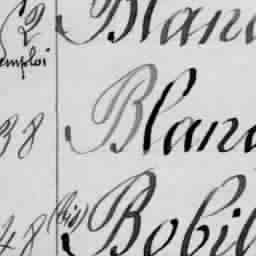 2 Blanc
emploi
38 Blanc
48 (bis) Bobil